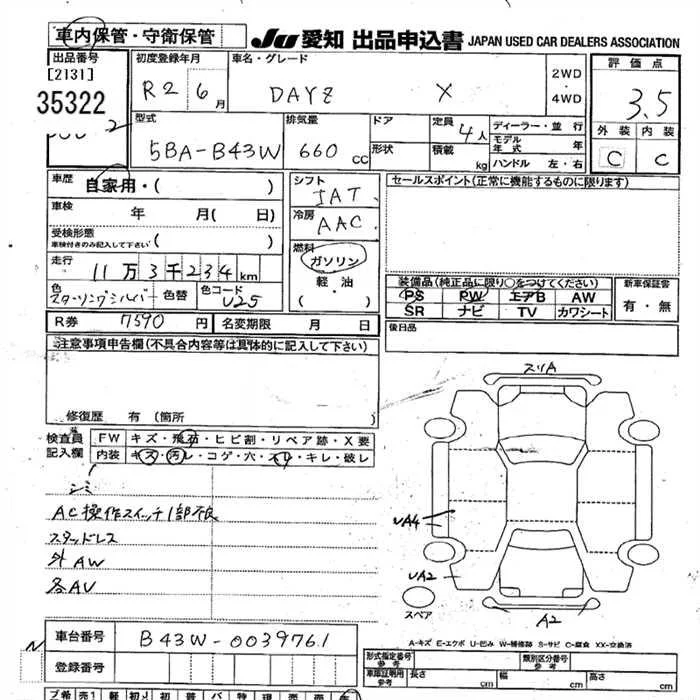 車内保管・守衛保管
JU 愛知 出品申込書 JAPAN USED CAR DEALERS ASSOCIATION
出品番号
[2131]
35322
初度登録年月
R2 6月
車名・グレード
DAYZ X
2WD
・
4WD
評価点
3.5
外装 内装
C C
型式
5BA-B43W
排気量
660 CC
ドア
形状
定員 4人
積載 kg
ディーラー・並行
モデル年式 年
ハンドル 左・右
車歴 自家用・( )
車検 年 月( 日)
受検形態
車検付きのみ記入して下さい ( )
走行
11万3千234km
色
スターリングシルバー
色替
色コード
U25
シフト
IAT
冷房
AAC
燃料
ガソリン
軽油
・
( )
セールスポイント(正常に機能するものに限ります)
装備品(純正品に限り○をつけてください)
PS PW エアB AW
SR ナビ TV カワシート
新車保証書
有・無
後日品
R券 7590円 名変期限 月 日
注意事項申告欄(不具合内容等は具体的に記入して下さい)
修復歴 有(箇所 )
検査員
記入欄
FW キズ・飛石・ヒビ割・リペア跡・X要
内装 キズ・汚レ・コゲ・穴・スレ・キレ・破レ
シミ
AC操作スイッチ1部不良
スタッドレス
外AW
各AU
スリA
UA4
UA2
A2
スペア
A-キズ E-エクボ U-凹み W-補修跡 S-サビ C-腐食 XX-交換済
車台番号 B43W-0039761
登録番号
形式指定番号
参考
類別区分番号
参考
車庫証明用
参考
長さ cm 幅 cm 高さ cm